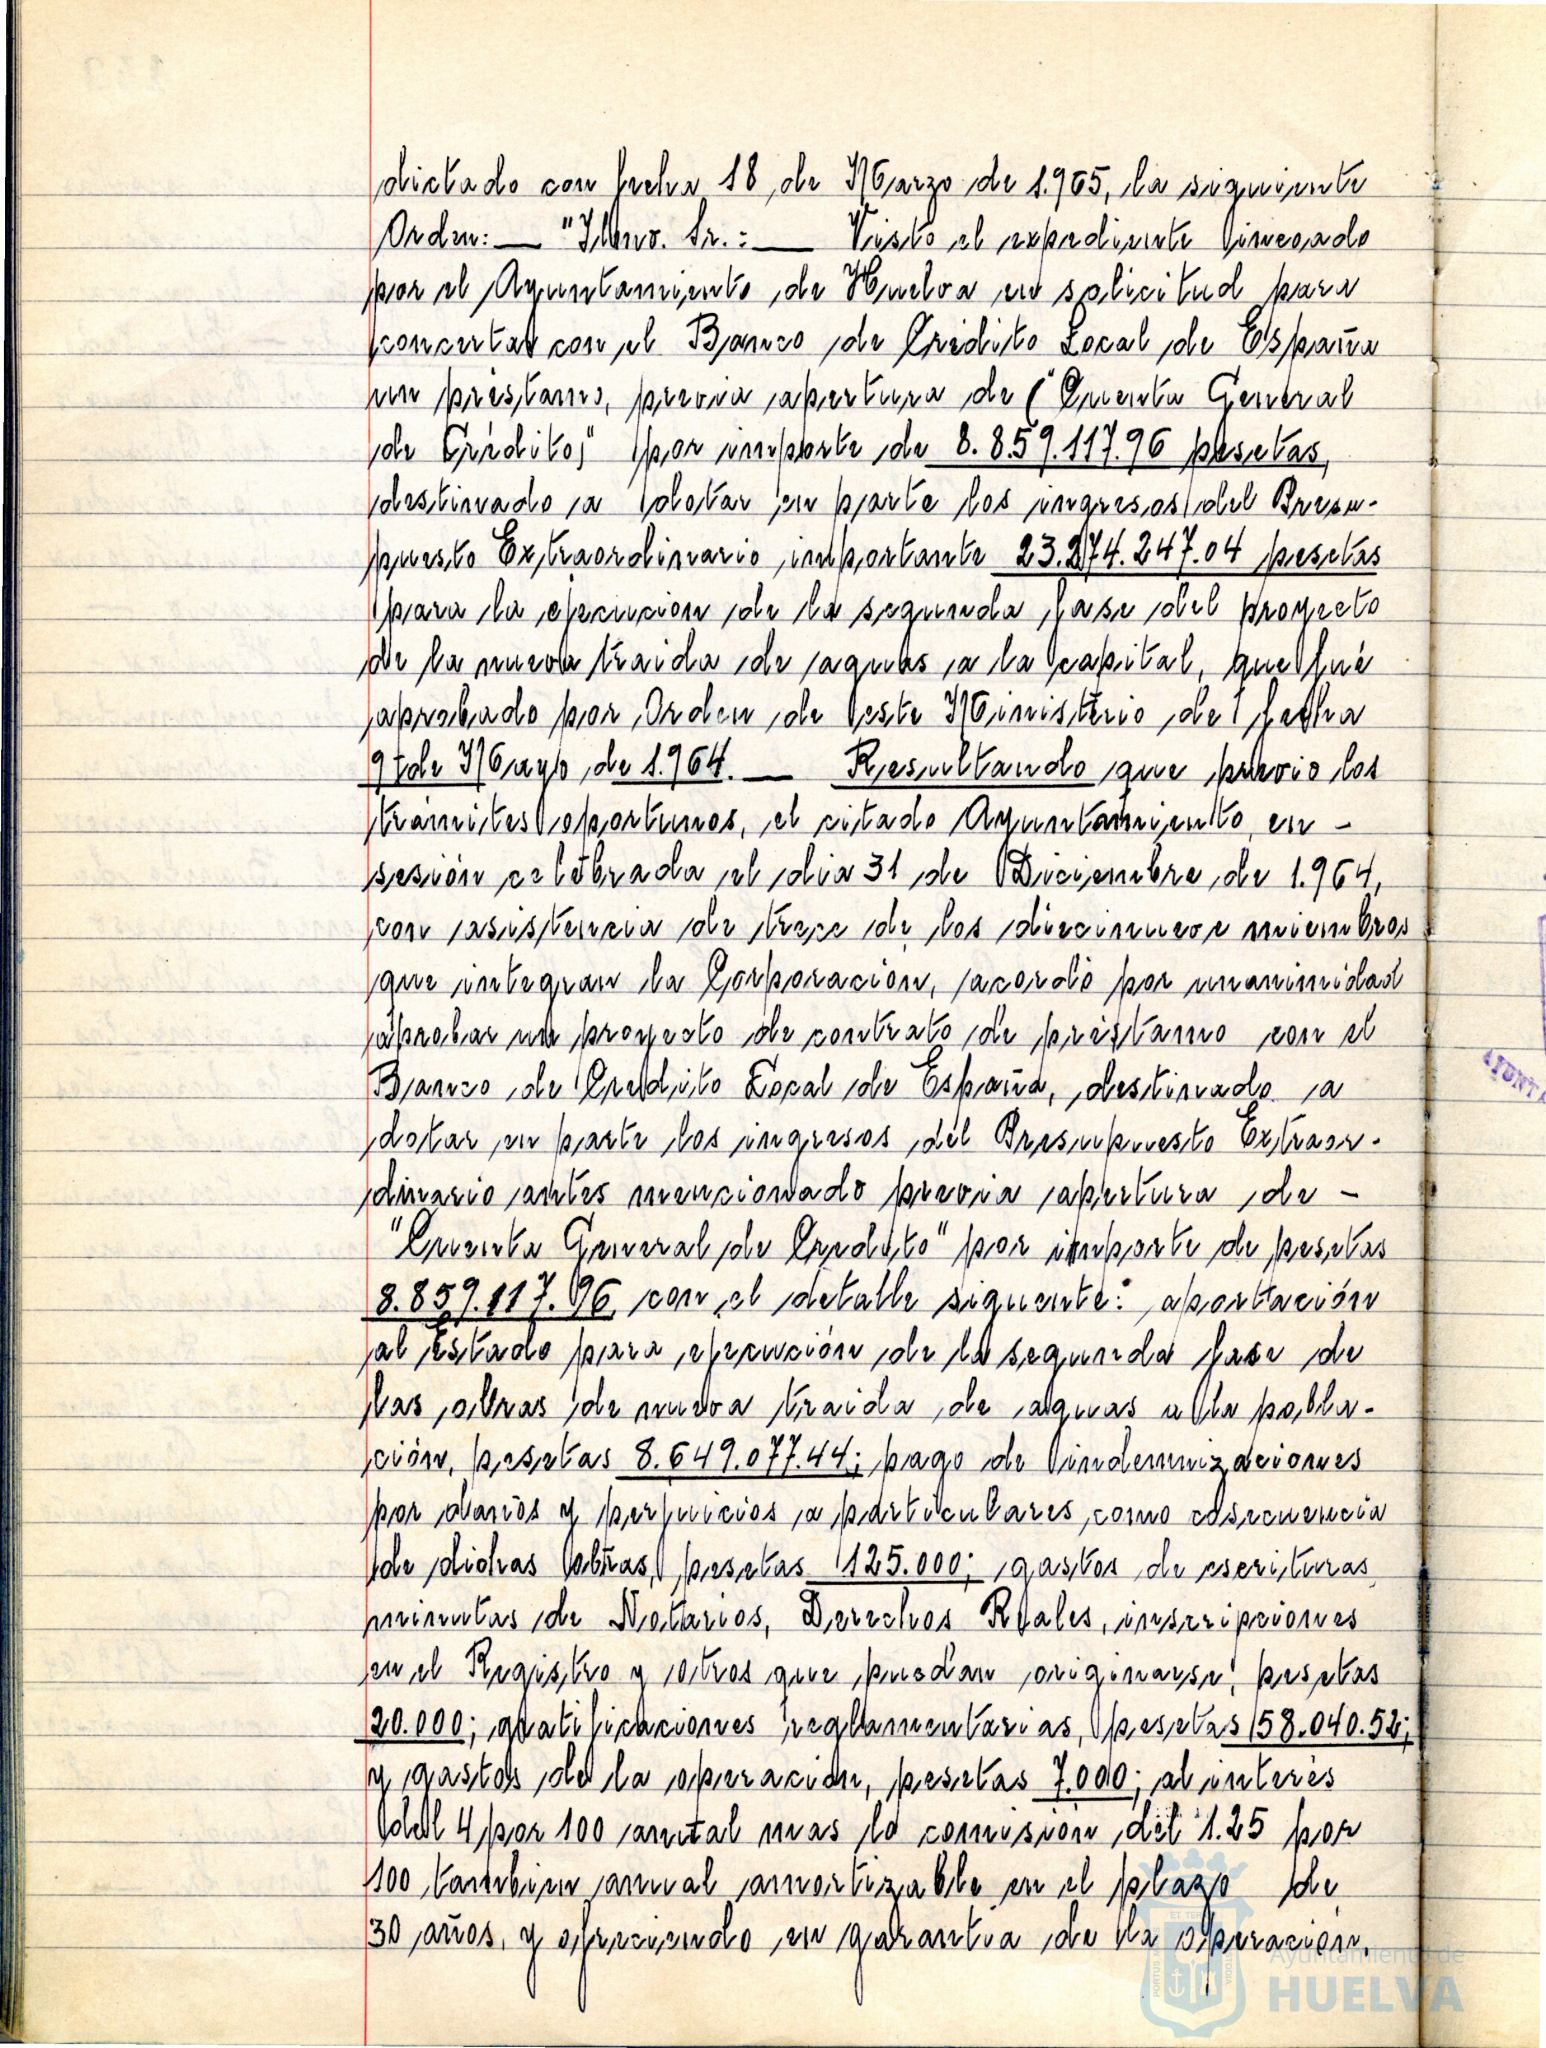 dictado con fecha 18 de Marzo de 1.965, la siguiente
Orden: — "Ilmo. Sr.: — Visto el expediente incoado
por el Ayuntamiento de Huelva en solicitud para
concertar con el Banco de Crédito Local de España
un préstamo, previa apertura de "Cuenta General
de Crédito," por importe de 8.859.117.96 pesetas,
destinado a dotar en parte los ingresos del Presu-
puesto Extraordinario importante 23.274.247.04 pesetas
para la ejecución de la segunda fase del proyecto
de la nueva traida de aguas a la capital, que fué
aprobado por Orden de este Ministerio de fecha
9 de Mayo de 1.964. — Resultando que previo los
trámites oportunos, el citado Ayuntamiento en -
sesión celebrada el dia 31 de Diciembre de 1.964,
con asistencia de trece de los diecinueve miembros
que integran la Corporación, acordó por unanimidad
aprobar un proyecto de contrato de préstamo con el
Banco de Credito Local de España, destinado a
dotar en parte los ingresos del Presupuesto Extraor-
dinario antes mencionado previa apertura de -
"Cuenta General de Credito" por importe de pesetas
8.859.117.96 con el detalle siguente: aportación
al Estado para ejecución de la segunda fase de
las obras de nueva traida de aguas a la pobla-
ción, pesetas 8.649.077.44; pago de indemnizaciones
por daños y perjuicios a particulares como cosecuencia
de dichas obras, pesetas 125.000; gastos de escrituras
minutas de Notarios, Derechos Reales, inscripciones
en el Registro y otros que puedan originarse, pesetas
20.000; gratificaciones reglamentarias, pesetas 58.040.52;
y gastos de la operación, pesetas 7.000; al interés
del 4 por 100 anual mas la comisión del 1.25 por
100 tambien anual amortizable en el plazo de
30 años, y ofreciendo en garantia de la operación,
AYUNTA
Ayuntamiento de
HUELVA